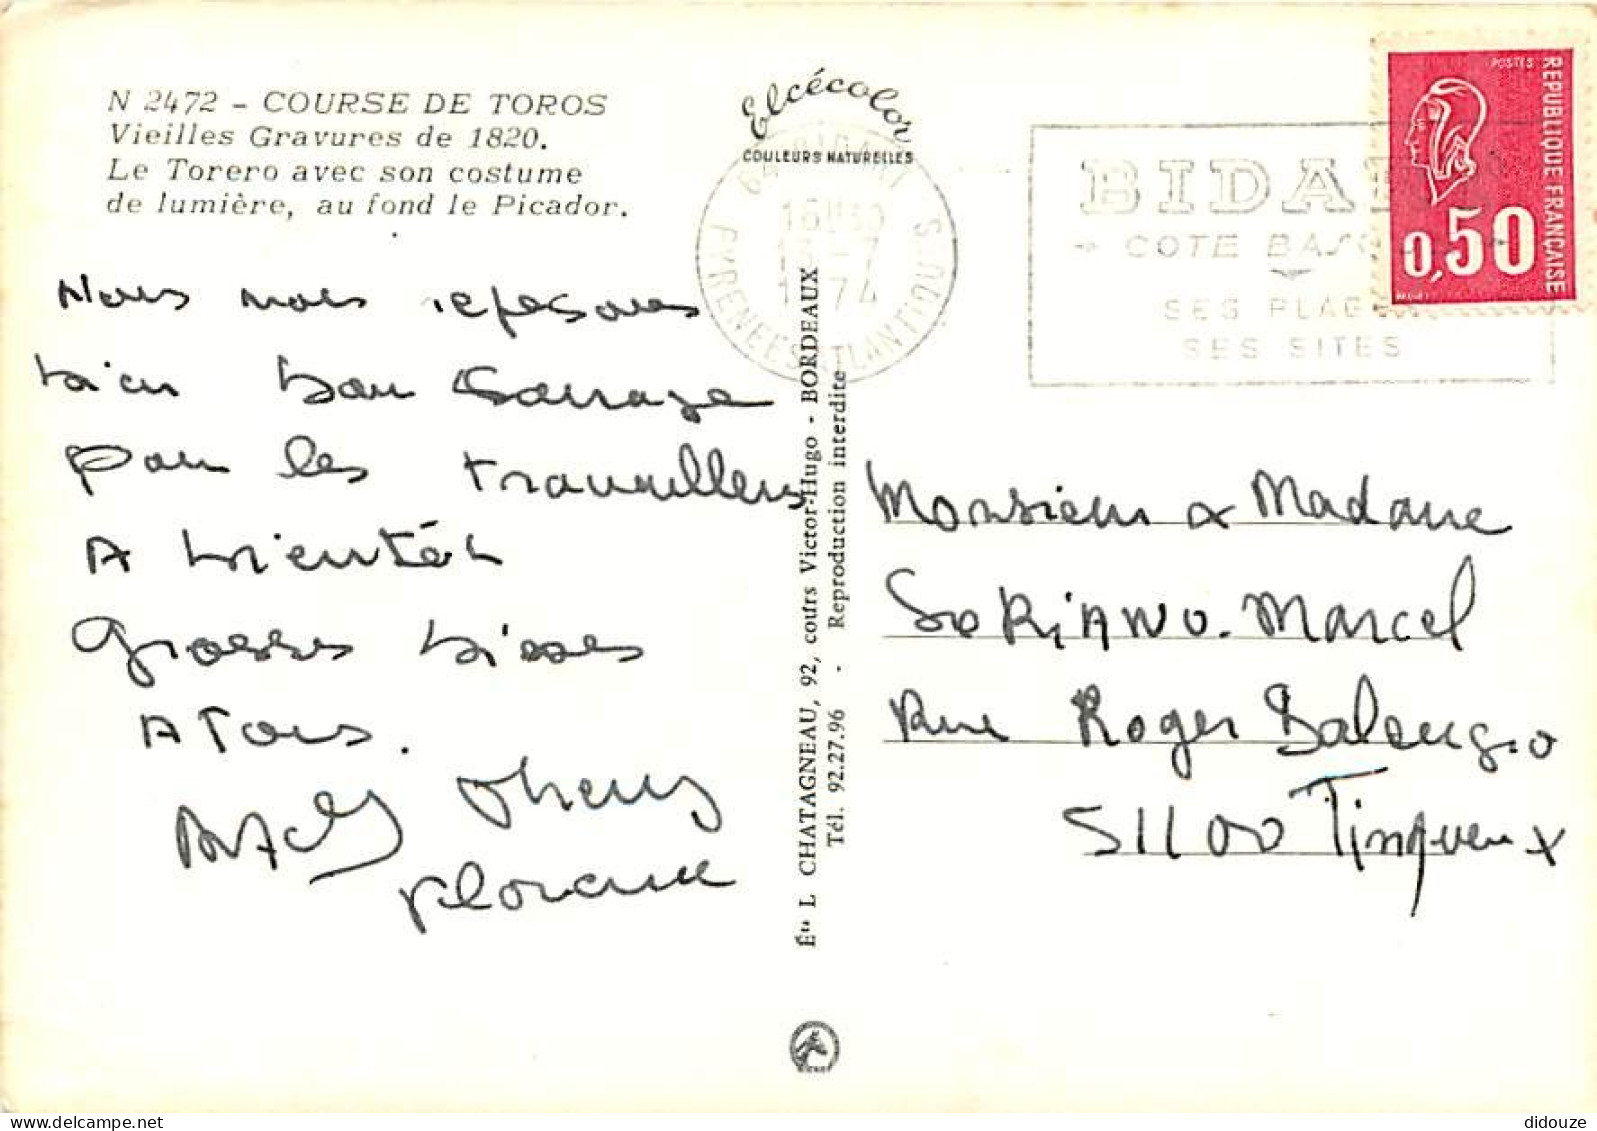 N 2472 - COURSE DE TOROS
Vieilles Gravures de 1820.
Le Torero avec son costume
de lumière, au fond le Picador.
Nous nous reposons
bien bon Courage
pour les travailleurs
A bientôt
Grosses bises
A Tous.
Florence
Elcécolor
COULEURS NATURELLES
Éts L. CHATAGNEAU, 92, cours Victor-Hugo - BORDEAUX
Tél. 92.27.96 - Reproduction interdite
PYRENEES ATLANTIQUES
BIDA
COTE BASQ
SES PLAG
SES SITES
POSTES
REPUBLIQUE FRANÇAISE
0,50
Monsieur & Madame
SORIANO. Marcel
Rue Roger Salengro
51100 Tinqueux
didouze @ delcampe.net